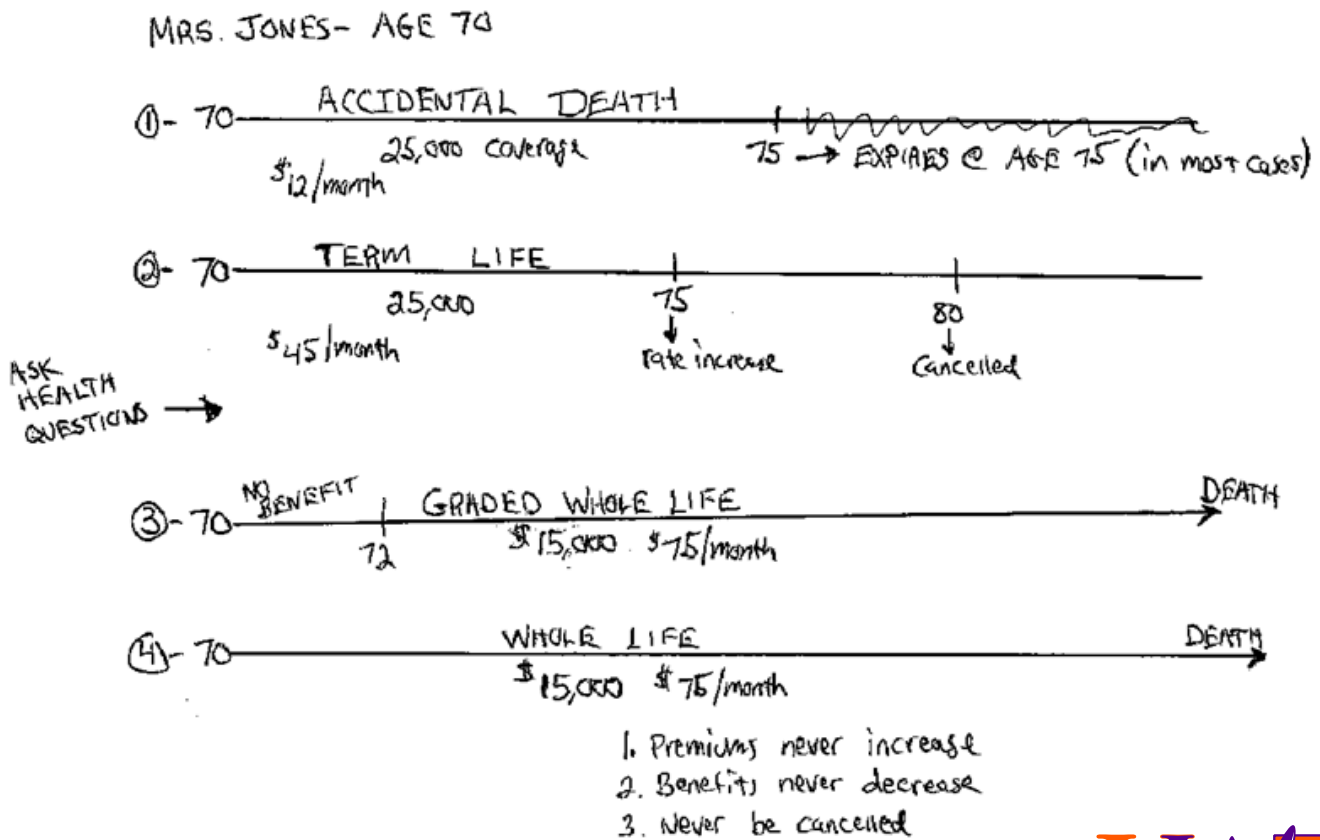 MRS. JONES- AGE 70
①- 70 ACCIDENTAL DEATH
25,000 coverage
$12/month
75 → EXPIRES @ AGE 75 (in most cases)
②- 70 TERM LIFE
25,000
$45/month
75
rate increase
80
Cancelled
ASK
HEALTH
QUESTIONS →
③- 70 NO BENEFIT GRADED WHOLE LIFE DEATH
72
$15,000 $75/month
④- 70 WHOLE LIFE DEATH
$15,000 $75/month
1. Premiums never increase
2. Benefits never decrease
3. Never be cancelled